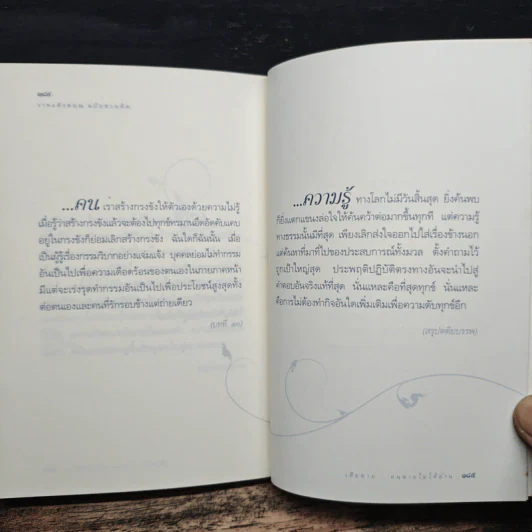 ๑๘๔
...คน เราสร้างกรงขังให้ตัวเองด้วยความไม่รู้
เมื่อรู้ว่าสร้างกรงขังแล้วจะต้องไปทุกข์ทรมานอึดอัดคับแคบ
อยู่ในกรงขังก็ย่อมเลิกสร้างกรงขัง ฉันใดก็ฉันนั้น เมื่อ
เป็นผู้รู้เรื่องกรรมวิบากอย่างแจ่มแจ้ง บุคคลย่อมไม่ทำกรรม
อันเป็นไปเพื่อความเดือดร้อนของตนเองในภายภาคหน้า
มีแต่จะเร่งรุดทำกรรมอันเป็นไปเพื่อประโยชน์สูงสุดทั้ง
ต่อตนเองและคนที่รักรอบข้างแต่ถ่ายเดียว
(บทที่ ๑๐)
...ความรู้ ทางโลกไม่มีวันสิ้นสุด ยิ่งค้นพบ
ก็ยิ่งแตกแขนงล่อใจให้ค้นคว้าต่อมากขึ้นทุกที แต่ความรู้
ทางธรรมนั้นมีที่สุด เพียงเลิกส่งใจออกไปใส่เรื่องข้างนอก
แต่ค้นหาที่มาที่ไปของประสบการณ์ทั้งมวล ตั้งคำถามไว้
ถูกเป้าใหญ่สุด ประพฤติปฏิบัติตรงทางอันจะนำไปสู่
คำตอบอันจริงแท้ที่สุด นั่นแหละคือที่สุดทุกข์ นั่นแหละ
คือการไม่ต้องทำกิจอันใดเพิ่มเติมเพื่อความดับทุกข์อีก
(สรุปตติยบรรพ)
เสียดาย คนตายไม่ได้อ่าน ๑๘๕